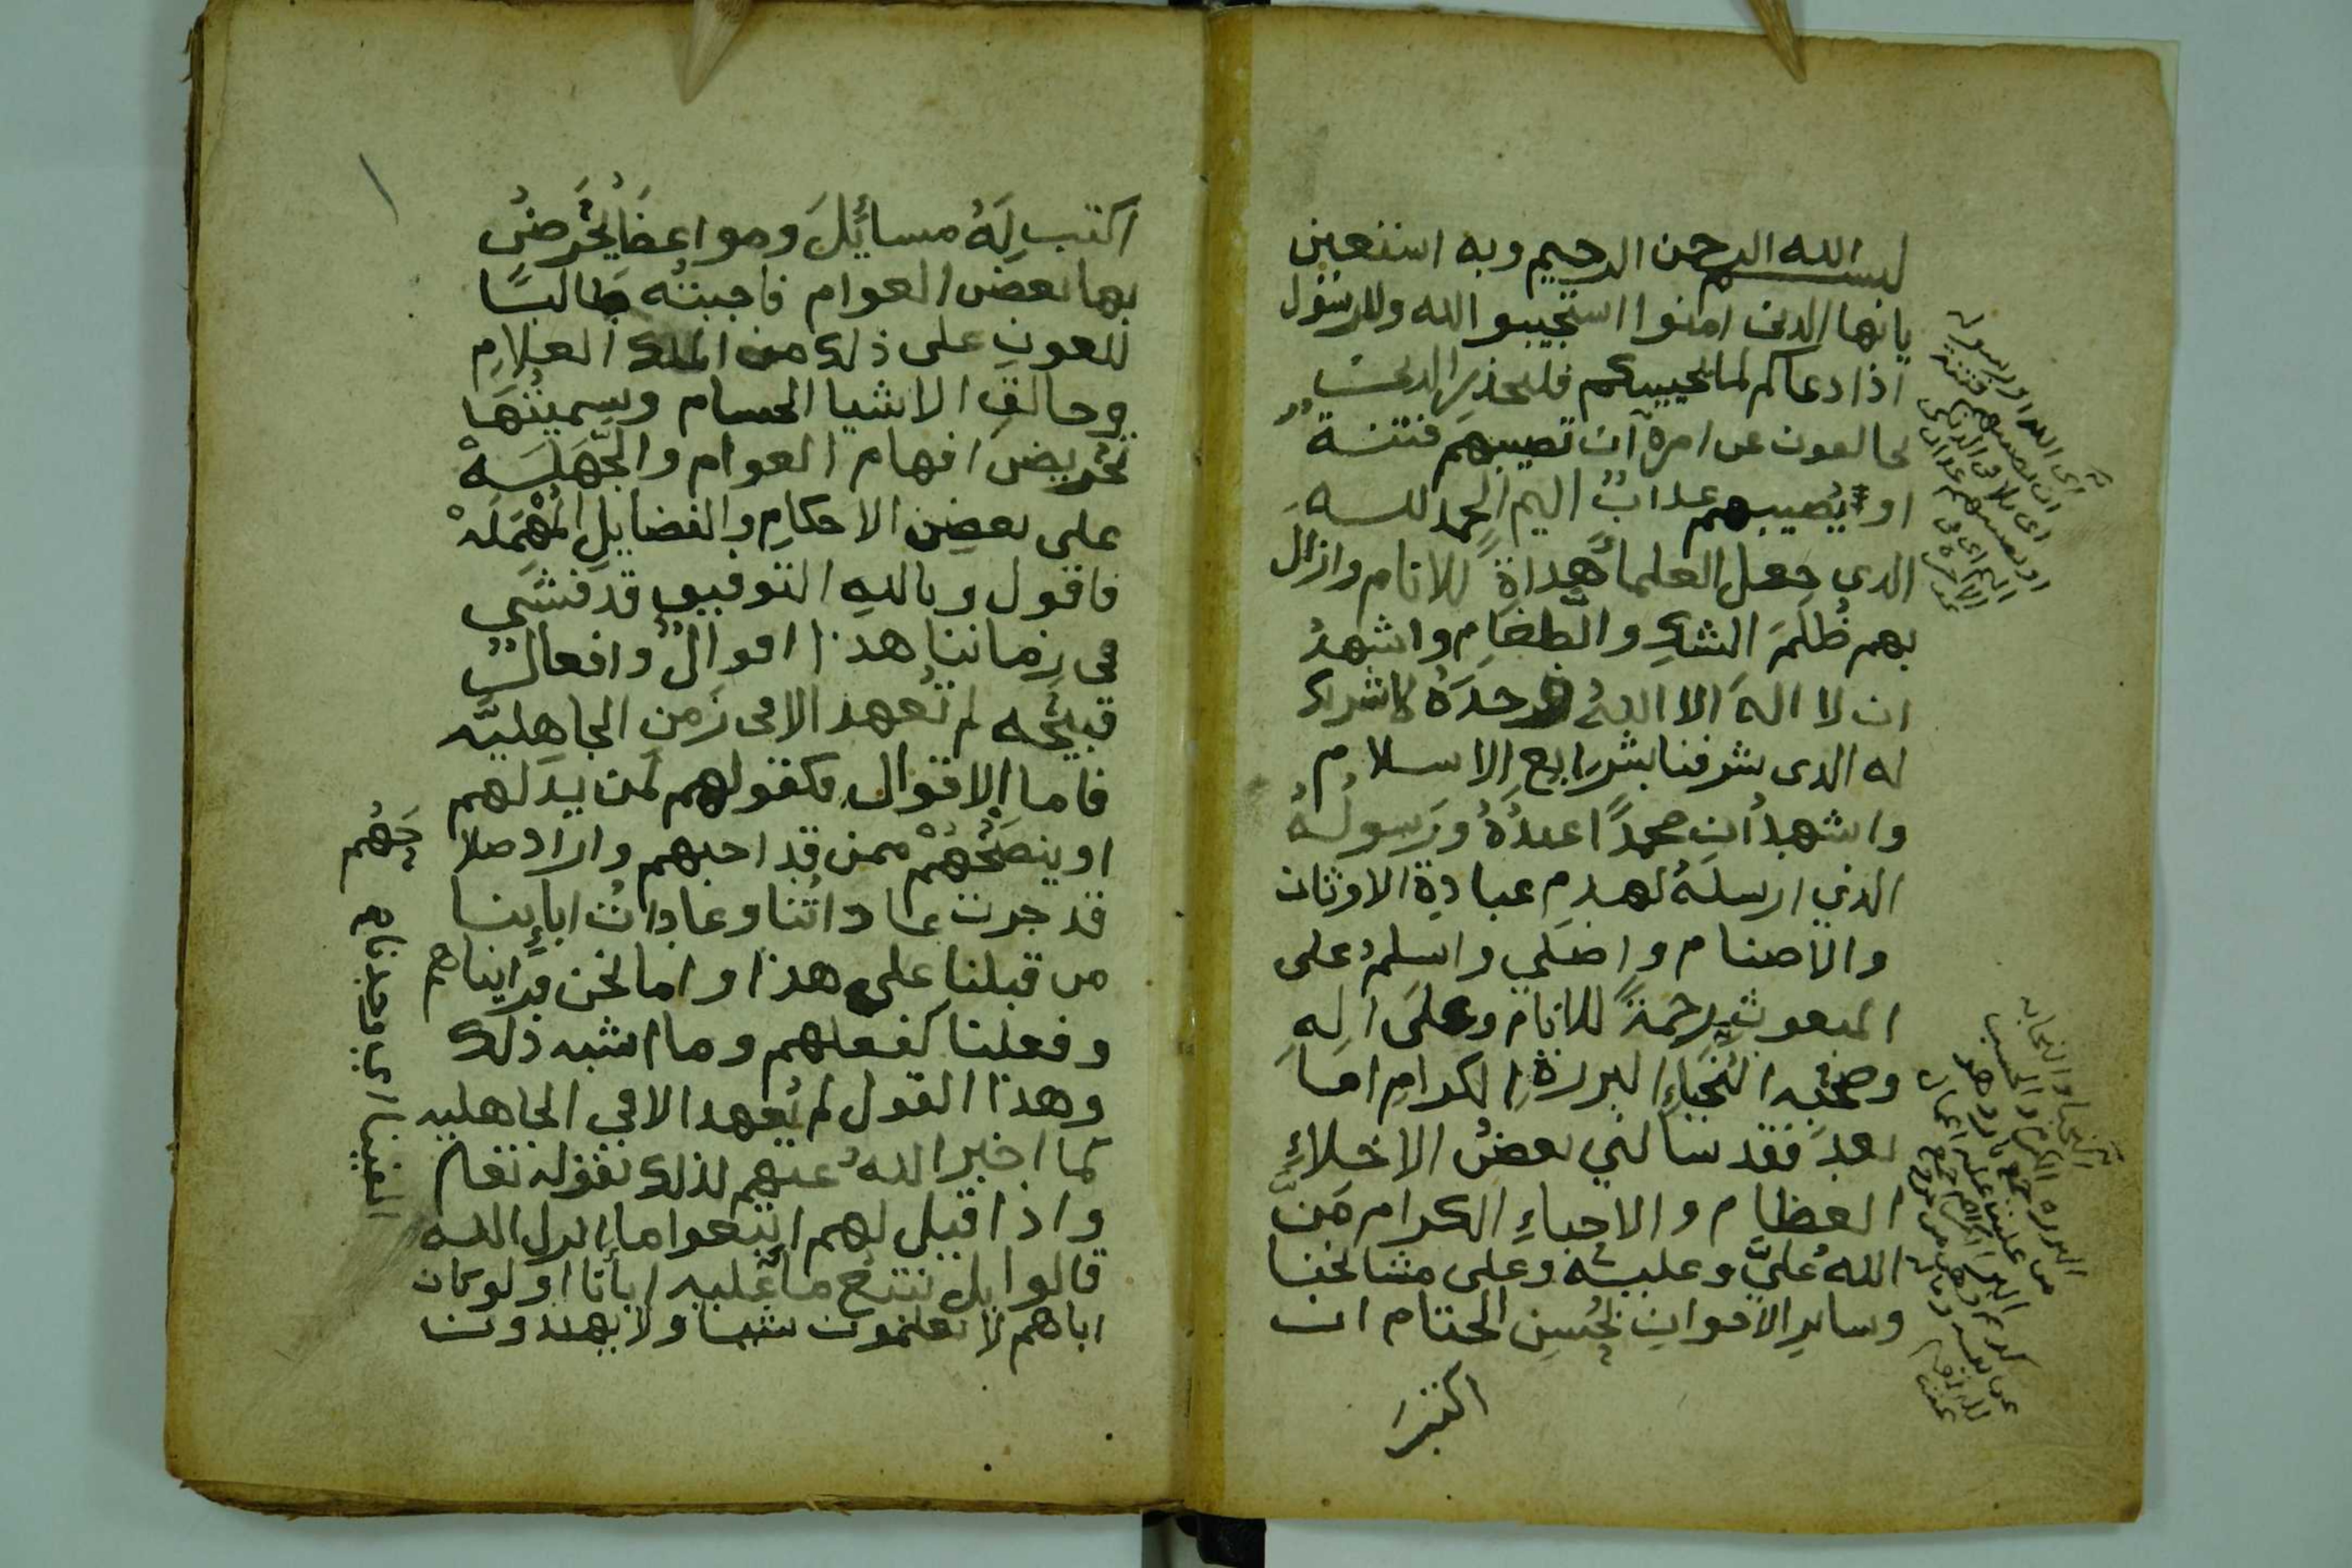 بسم الله الرحمن الرحيم وبه استعين
يايها الذين امنوا استجيبوا لله وللرسول
اذا دعاكم لما يحييكم فليحذر الذين
يخالفون عن امره ان تصيبهم فتنة
او يصيبهم عذاب اليم الحمد لله
الذي جعل العلماء هداة للانام وازال
بهم ظلم الشك والطغام واشهد
ان لا اله الا الله وحده لا شريك
له الذي شرفنا بشرايع الاسلام
واشهد ان محمدا عبده ورسوله
الذي ارسله لهدم عبادة الاوثان
والاصنام واصلي واسلم على
المبعوث رحمة للانام وعلى اله
وصحبه النجباء البررة الكرام اما
بعد فقد سالني بعض الاخلاء
العظام والاحباء الكرام من
الله علي وعليه وعلى مشايخنا
وساير الاخوان بحسن الختام ان
اكتب
اي الله او رسوله
ان تصيبهم فتنة
اي بلا في الدنيا
او يصيبهم عذاب
اليم اي في
الاخرة
اكتب له مسائل ومواعضا يحرض
بها بعض العوام فاجبته طالبا
للعون على ذلك من الملك العلام
وخالق الاشيا الجسام وسميتها
تحريض افهام العوام والجهلة
على بعض الاحكام والفضايل المهملة
فاقول وبالله التوفيق قد فشى
في زماننا هذا اقوال وافعال
قبيحه لم تعهد الا في زمن الجاهليه
فاما الاقوال فكقولهم لمن يدلهم
او ينصحهم ممن قد احبهم واراد صلاحهم
قد جرت عاداتنا وعادات ابائنا
من قبلنا على هذا واما نحن فرايناهم
وفعلنا كفعلهم وما اشبه ذلك
وهذا القول لم يعهد الا في الجاهليه
كما اخبر الله عنهم لذلك بقوله تعالى
واذا قيل لهم اتبعوا ما انزل الله
قالوا بل نتبع ما الفينا عليه اباءنا اولو كان
اباهم لا يعلمون شيا ولا يهتدون
الفينا اي وجدنا